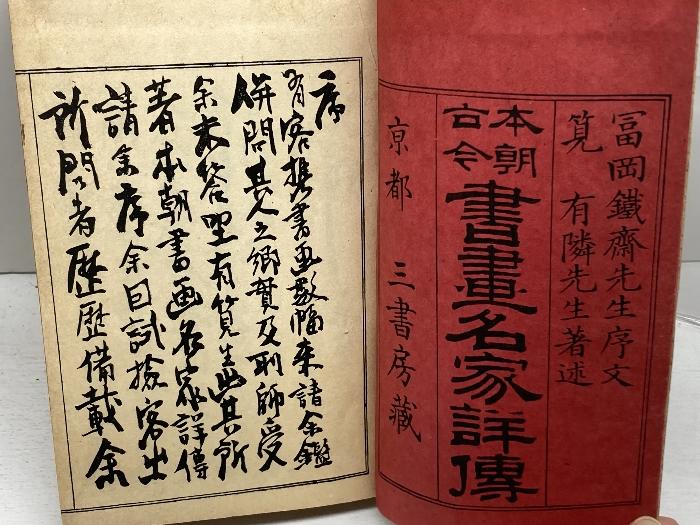 冨岡鐵齋先生序文
筧 有隣先生著述
本朝
古今
書畫名家詳傳
京都 三書房藏
序
有客携書画数幅来請余鑑
併問其人之鄉貫及所師受
余未答里有筧生出其所
著本朝書画名家詳傳
請余序余因試撿客出
所問者歴歴備載余